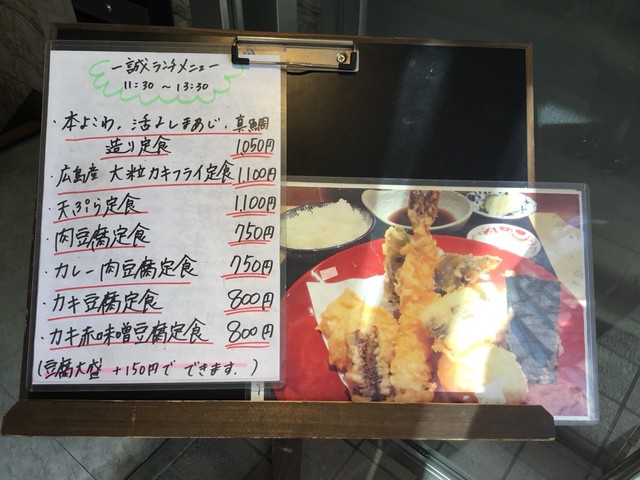 一誠ランチメニュー
11:30 ～ 13:30
・本よこわ, 活〆しまあじ, 真鯛
造り定食 1,050円
・広島産 大粒カキフライ定食 1,100円
・天ぷら定食 1,100円
肉豆腐定食 750円
・カレー肉豆腐定食 750円
・カキ豆腐定食 800円
・カキ赤味噌豆腐定食 800円
(豆腐大盛 +150円で できます.)